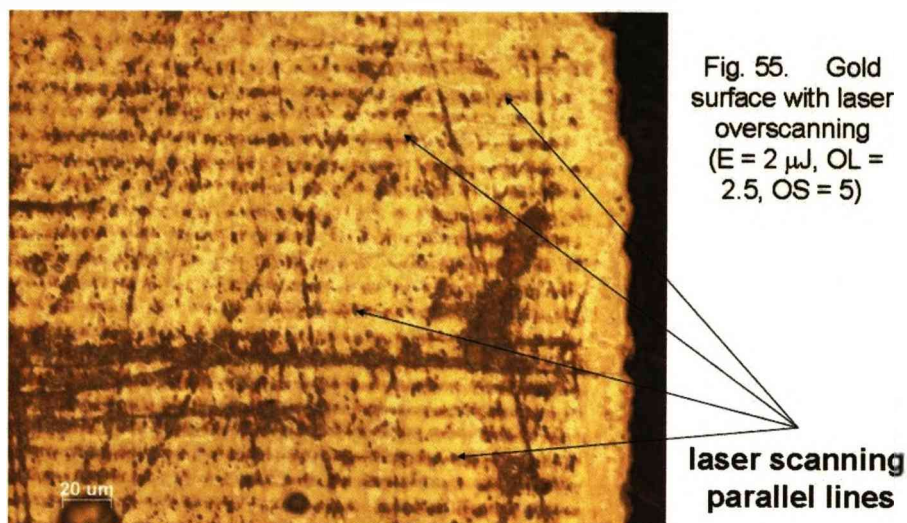 Fig. 55. Gold
surface with laser
overscanning
(E = 2 μJ, OL =
2.5, OS = 5)
laser scanning
parallel lines
20 um